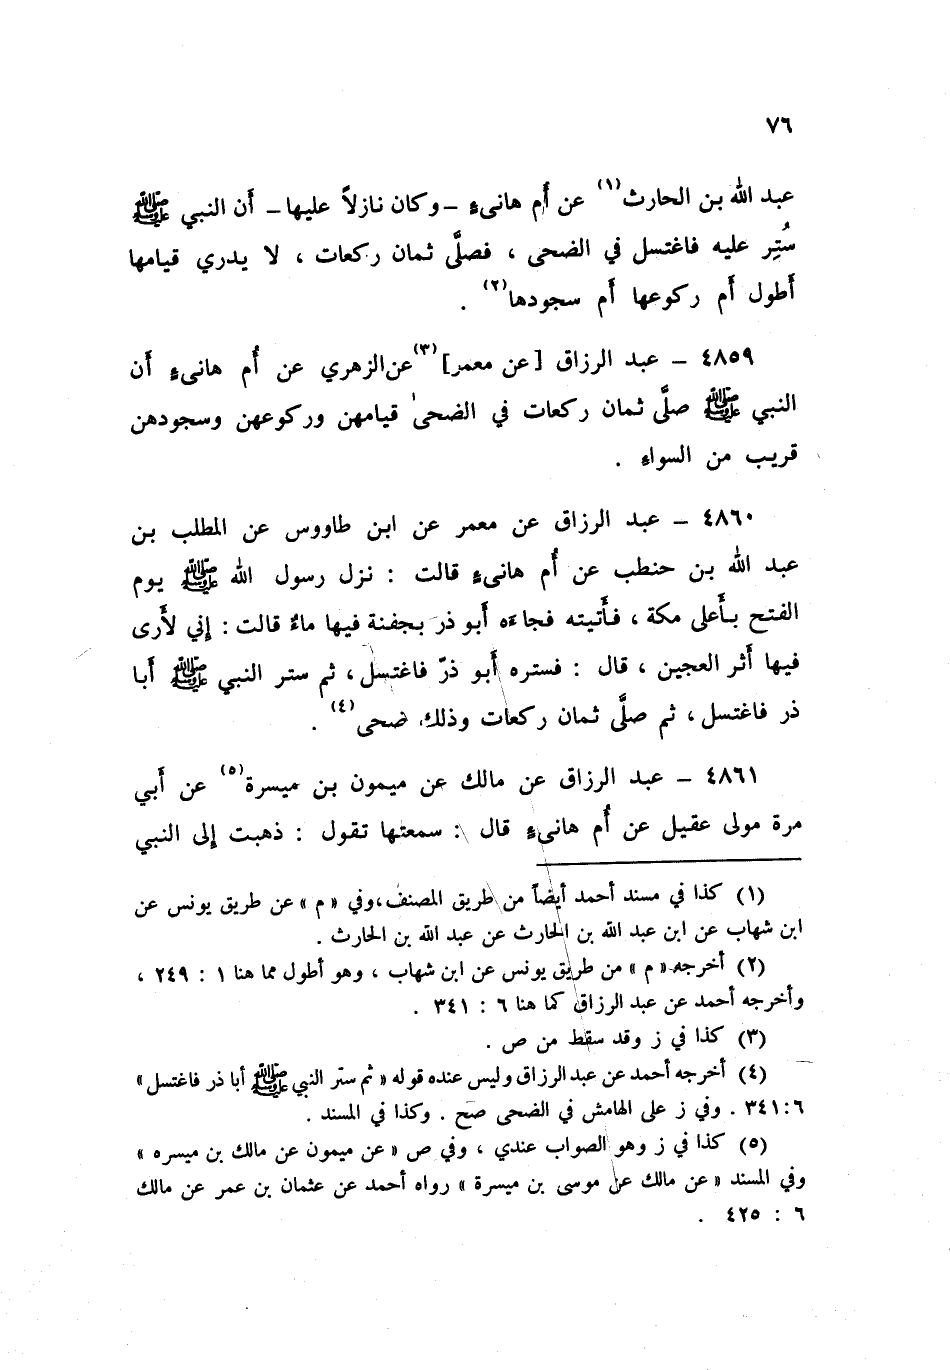 ٧٦
عبد الله بن الحارث(١) عن أُم هانىءٍ – وكان نازلاً عليها – أَن النبي ﷺ
سُتِر عليه فاغتسل في الضحى ، فصلَّى ثمان ركعات ، لا يدري قيامها
أَطول أَم ركوعها أَم سجودها(٢) .
٤٨٥٩ – عبد الرزاق [عن معمر](٣) عن الزهري عن أُم هانىءٍ أَن
النبي ﷺ صلَّى ثمان ركعات في الضحىٰ قيامهن وركوعهن وسجودهن
قريب من السواءِ .
٤٨٦٠ – عبد الرزاق عن معمر عن ابن طاووس عن المطلب بن
عبد الله بن حنطب عن أُم هانىءٍ قالت : نزل رسول الله ﷺ يوم
الفتح بأَعلى مكة ، فأَتيته فجاءَه أَبو ذر بجفنة فيها ماءٌ قالت : إِني لأَرى
فيها أَثر العجين ، قال : فستره أَبو ذرّ فاغتسل ، ثم ستر النبي ﷺ أَبا
ذر فاغتسل ، ثم صلَّى ثمان ركعات وذلك ضحى(٤) .
٤٨٦١ – عبد الرزاق عن مالك عن ميمون بن ميسرة(٥) عن أَبي
مرة مولى عقيل عن أُم هانىءٍ قال : سمعتها تقول : ذهبت إلى النبي
(١) كذا في مسند أحمد أيضاً من طريق المصنف ، وفي « م » عن طريق يونس عن
ابن شهاب عن ابن عبد الله بن الحارث عن عبد الله بن الحارث .
(٢) أخرجه « م » من طريق يونس عن ابن شهاب ، وهو أطول مما هنا ١ : ٢٤٩ ،
وأخرجه أحمد عن عبد الرزاق كما هنا ٦ : ٣٤١ .
(٣) كذا في ز وقد سقط من ص .
(٤) أخرجه أحمد عن عبد الرزاق وليس عنده قوله « ثم ستر النبي ﷺ أبا ذر فاغتسل »
٦ : ٣٤١ . وفي ز على الهامش في الضحى صح . وكذا في المسند .
(٥) كذا في ز وهو الصواب عندي ، وفي ص « عن ميمون عن مالك بن ميسره »
وفي المسند « عن مالك عن موسى بن ميسرة » رواه أحمد عن عثمان بن عمر عن مالك
٦ : ٤٢٥ .